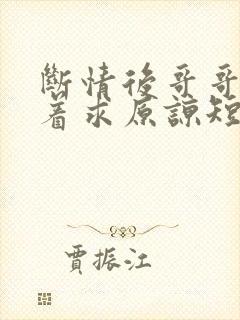 斷情後哥哥
着求原諒短
賈振江